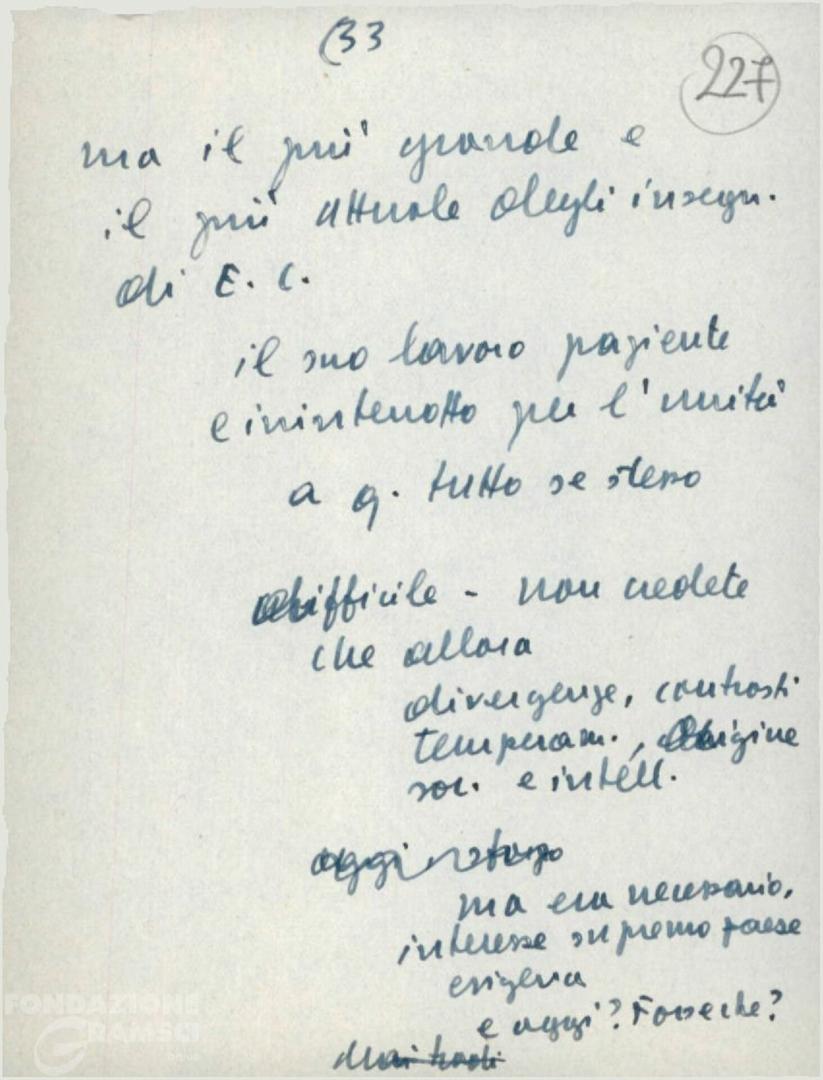 (33
227
ma il più grande e
il più attuale degli insegn.
di E. C.
il suo lavoro paziente
e ininterrotto per l'unità
a q. tutto se stesso
difficile - non credete
che allora
divergenze, contrasti
temperam., origine
soc. e intell.
oggi
ma era necessario,
interesse supremo paese
esigeva
e oggi? Forse che?
FONDAZIONE
GRAMSCI